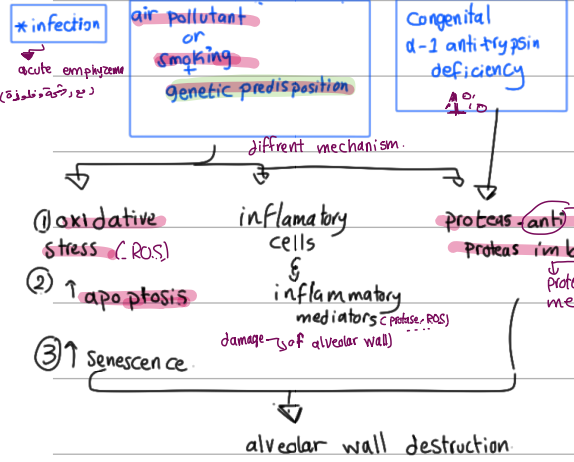 *infection
acute emphyzema
air pollutant
or
smoking
+
genetic predisposition
Congenital
α-1 antitrypsin
deficiency
diffrent mechanism.
① oxidative
stress (ROS)
② ↑ apoptosis
③ ↑ senescence
inflamatory
cells
inflammatory
mediators (protase, ROS)
damage → of alveolar wall)
proteas - anti
proteas imb
prote
me
alveolar wall destruction